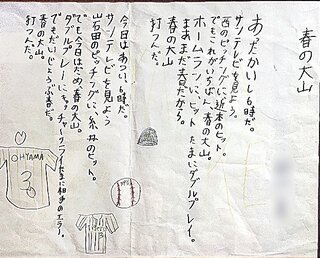 春の大山
あたたかいし6時だ。
サンテレビを見よう。
西のピッチングに、近本のヒット。
でもこれがいちばん、春の大山。
ホームランに、ヒット たまにダブルプレイ。
まあまだ春だから。
春の大山
打つんだ。
今日はあつい、6時だ。
サンテレビを見よう
岩田のピッチングに、糸井のヒット。
でも今日はだめ、春の大山。
ダブルプレーに、キャッチャーフライ たまに相手のエラー。
でもだいじょうぶ春だ。
打つんだ。
OHYAMA
3